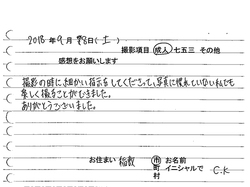 2018年9月88日(土)
撮影項目 成人 七五三 その他
感想をお願いします
撮影の時に細かい指示をしてくださって、写真に慣れていない私でも
楽しく撮ることができました。
ありがとうございました。
お住まい 稲敷 市町村 お名前イニシャルで C.K